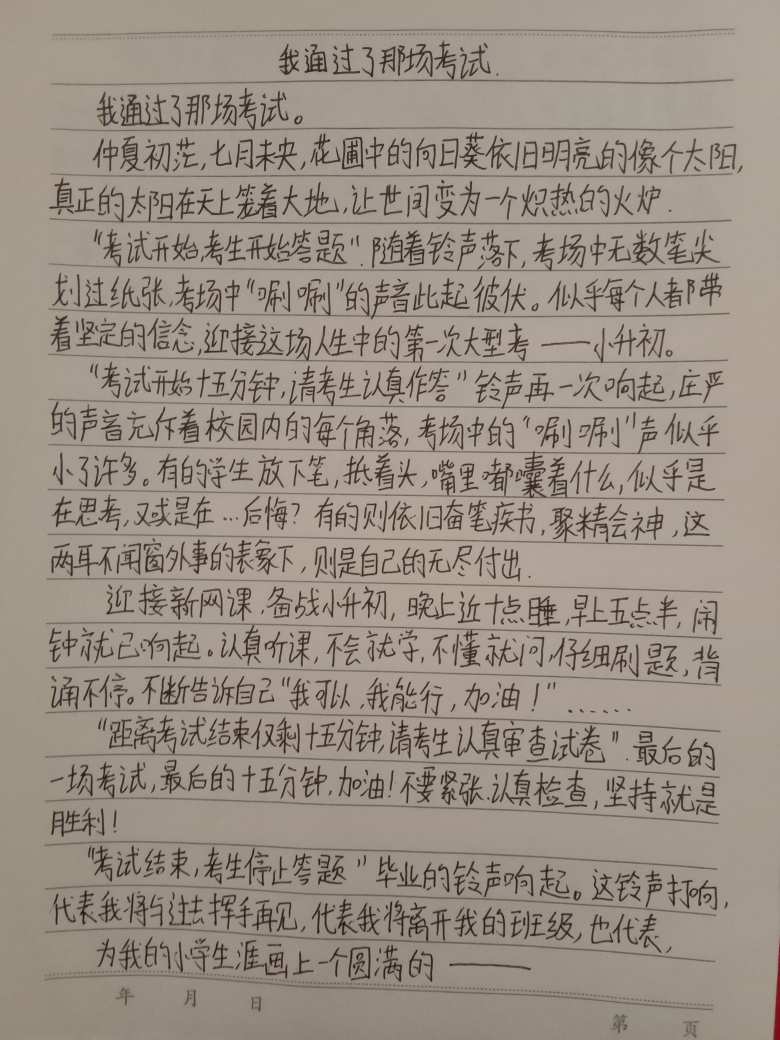 我通过了那场考试.
我通过了那场考试。
仲夏初茫,七月未央,花圃中的向日葵依旧明亮的像个太阳,
真正的太阳在天上笼着大地,让世间变为一个炽热的火炉.
“考试开始,考生开始答题”.随着铃声落下,考场中无数笔尖
划过纸张,考场中“唰唰”的声音此起彼伏。似乎每个人都带
着坚定的信念,迎接这场人生中的第一次大型考——小升初。
“考试开始十五分钟,请考生认真作答”铃声再一次响起,庄严
的声音充斥着校园内的每个角落,考场中的“唰唰”声似乎
小了许多。有的学生放下笔,抵着头,嘴里嘟囔着什么,似乎是
在思考,又或是在…后悔?有的则依旧奋笔疾书,聚精会神,这
两耳不闻窗外事的表象下,则是自己的无尽付出.
迎接新网课,备战小升初,晚上近十点睡,早上五点半,闹
钟就已响起。认真听课,不会就学,不懂就问,仔细刷题,背
诵不停。不断告诉自己“我可以,我能行,加油!”……
“距离考试结束仅剩十五分钟,请考生认真审查试卷”.最后的
一场考试,最后的十五分钟,加油!不要紧张.认真检查,坚持就是
胜利!
“考试结束,考生停止答题”毕业的铃声响起。这铃声打响,
代表我将与过去挥手再见,代表我将离开我的班级,也代表,
为我的小学生涯画上一个圆满的——
年 月 日
第 页